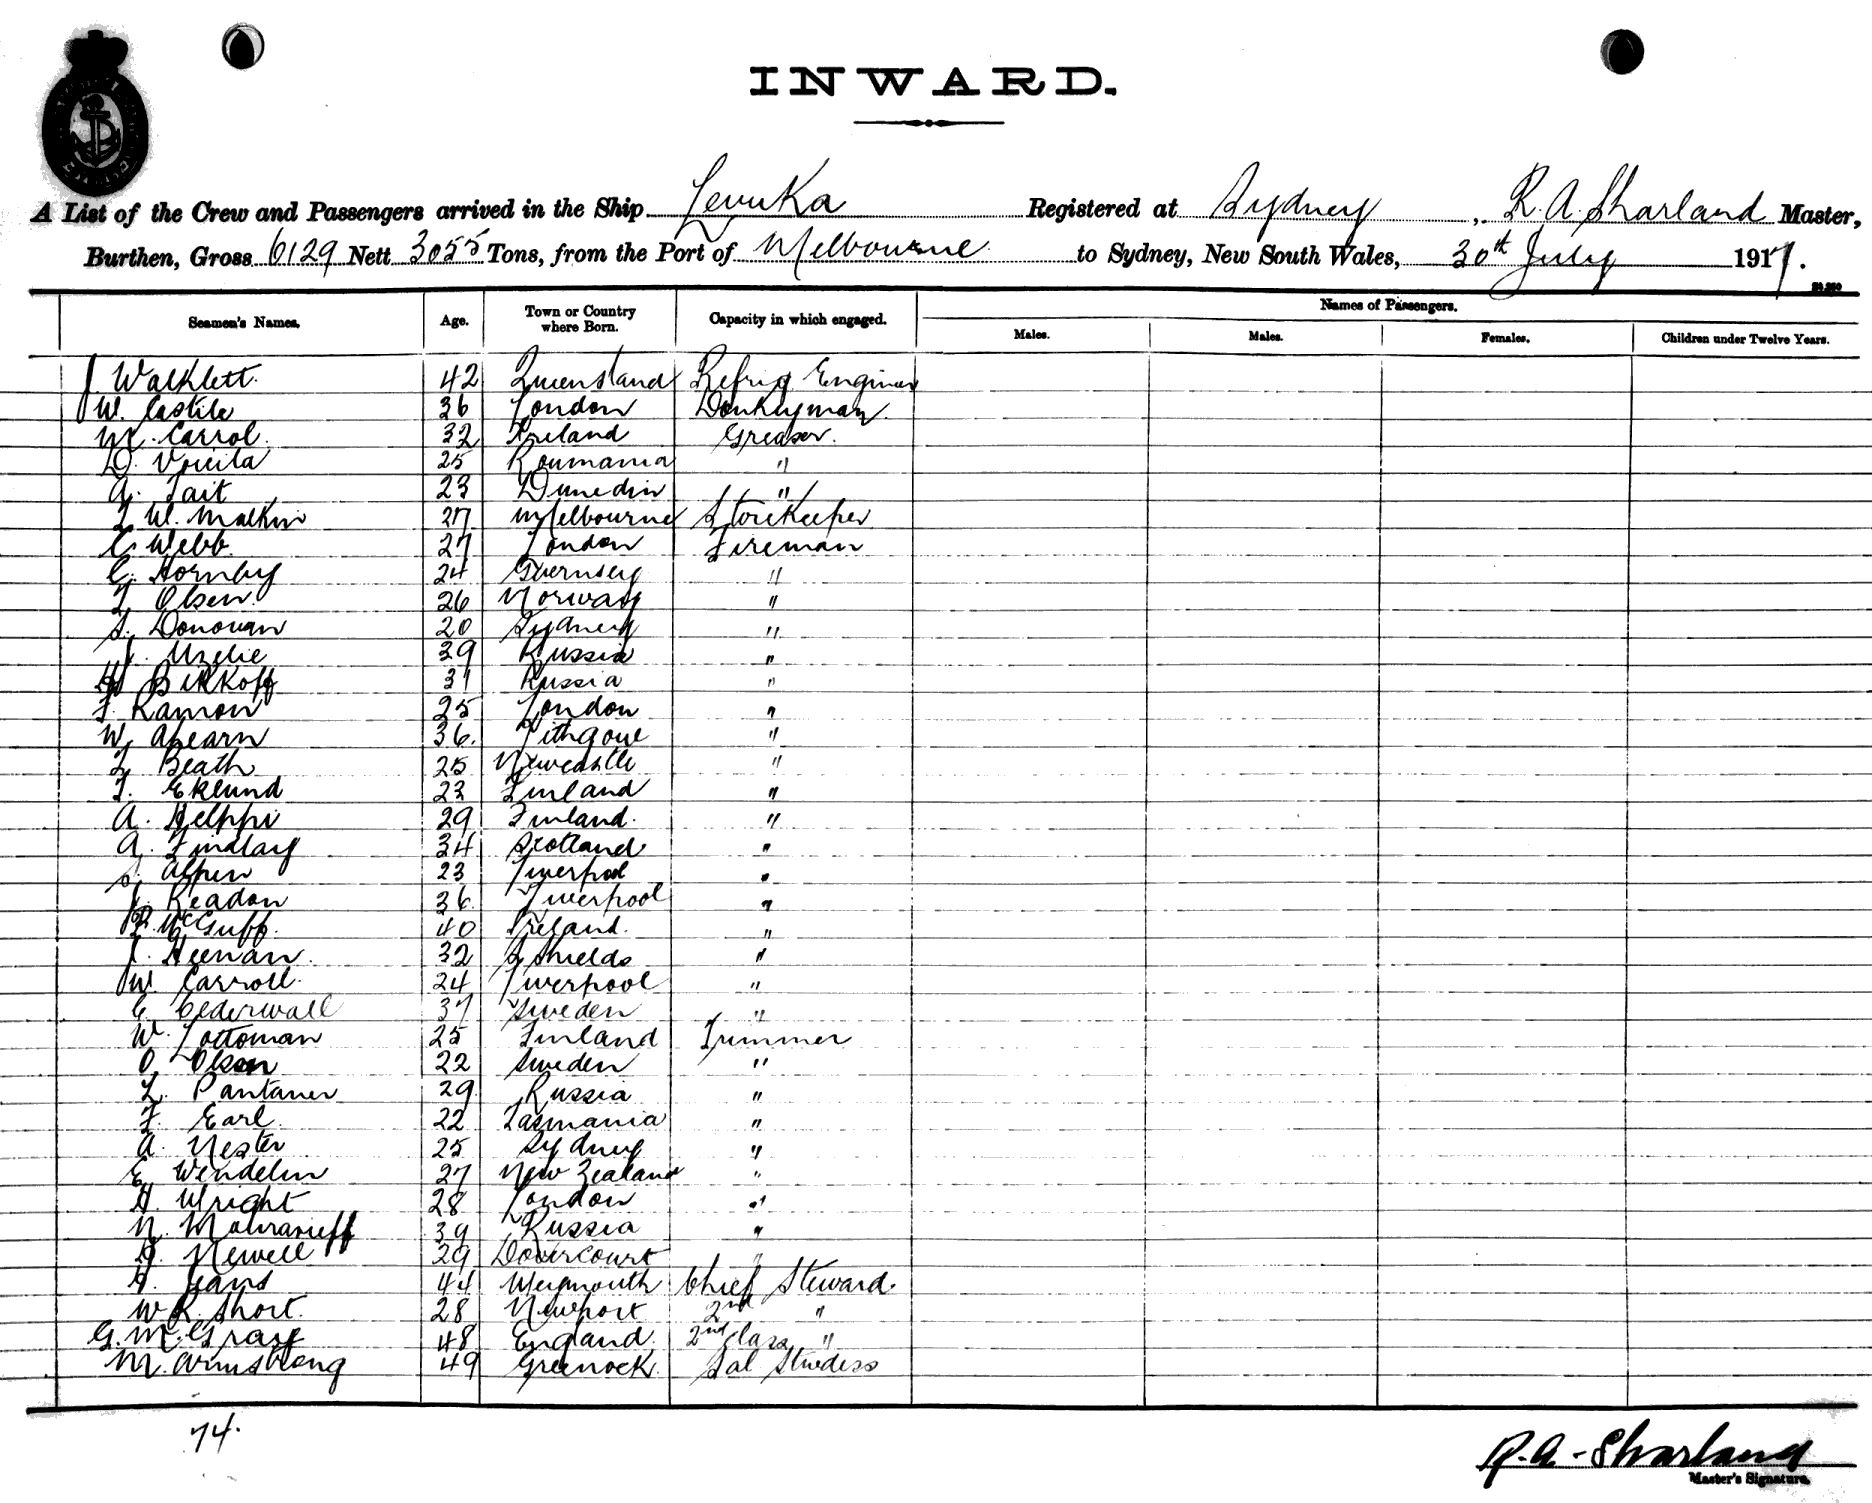 INWARD.
A List of the Crew and Passengers arrived in the Ship Levuka Registered at Sydney, R. A. Sharland Master,
Burthen, Gross 6129 Nett 3055 Tons, from the Port of Melbourne to Sydney, New South Wales, 30th July 1917.
Names of Passengers.
Seamen's Names. Age. Town or Country where Born. Capacity in which engaged. Males. Males. Females. Children under Twelve Years.
J Walklett. 42 Queensland Refrig Engineer
W. Castile 36 London Donkeyman.
M. Carrol. 32 Ireland Greaser.
D. Voicila 25 Roumania "
A. Tait 23 Dunedin "
L W. Malkin 27 Melbourne Storekeeper
C Webb. 27 London Fireman
C. Hornby 24 Guernsey "
T Olsen. 26 Norway "
S. Donovan 20 Sydney "
J. Uzelie 39 Russia "
Birkoff 31 Russia "
F. Ramon 25 London "
W. Ahearn 36. Lithgow "
T Beath 25 Newcastle "
F. Eklund 23 Finland "
A. Helppi 29 Finland. "
A. Findlay 34 Scotland "
S. Alpen 23 Liverpool "
J. Readon 36. Liverpool "
P. McGuff. 40 Ireland. "
J. Heenan. 32 S Shields "
W. Carroll. 24 Liverpool "
E. Cederwall 37 Sweden "
W. Lottoman 25 Finland Trimmer
O. Olsen 22 Sweden "
L. Pantaner 29 Russia "
F. Earl. 22 Tasmania "
A. Nester 25 Sydney "
E. Wendelin 27 New Zealand "
H. Wright 28 London "
N. 39 Russia "
H. Newell 29 Dovercourt "
H. Jeans 44 Weymouth Chief Steward.
W R. Short. 28 Newport 2nd "
G. M. Gray 48 England. 2nd Class "
M. Armstrong 49 Greenock. Sal Stwdess
74.
R. A. Sharland
Master's Signature.